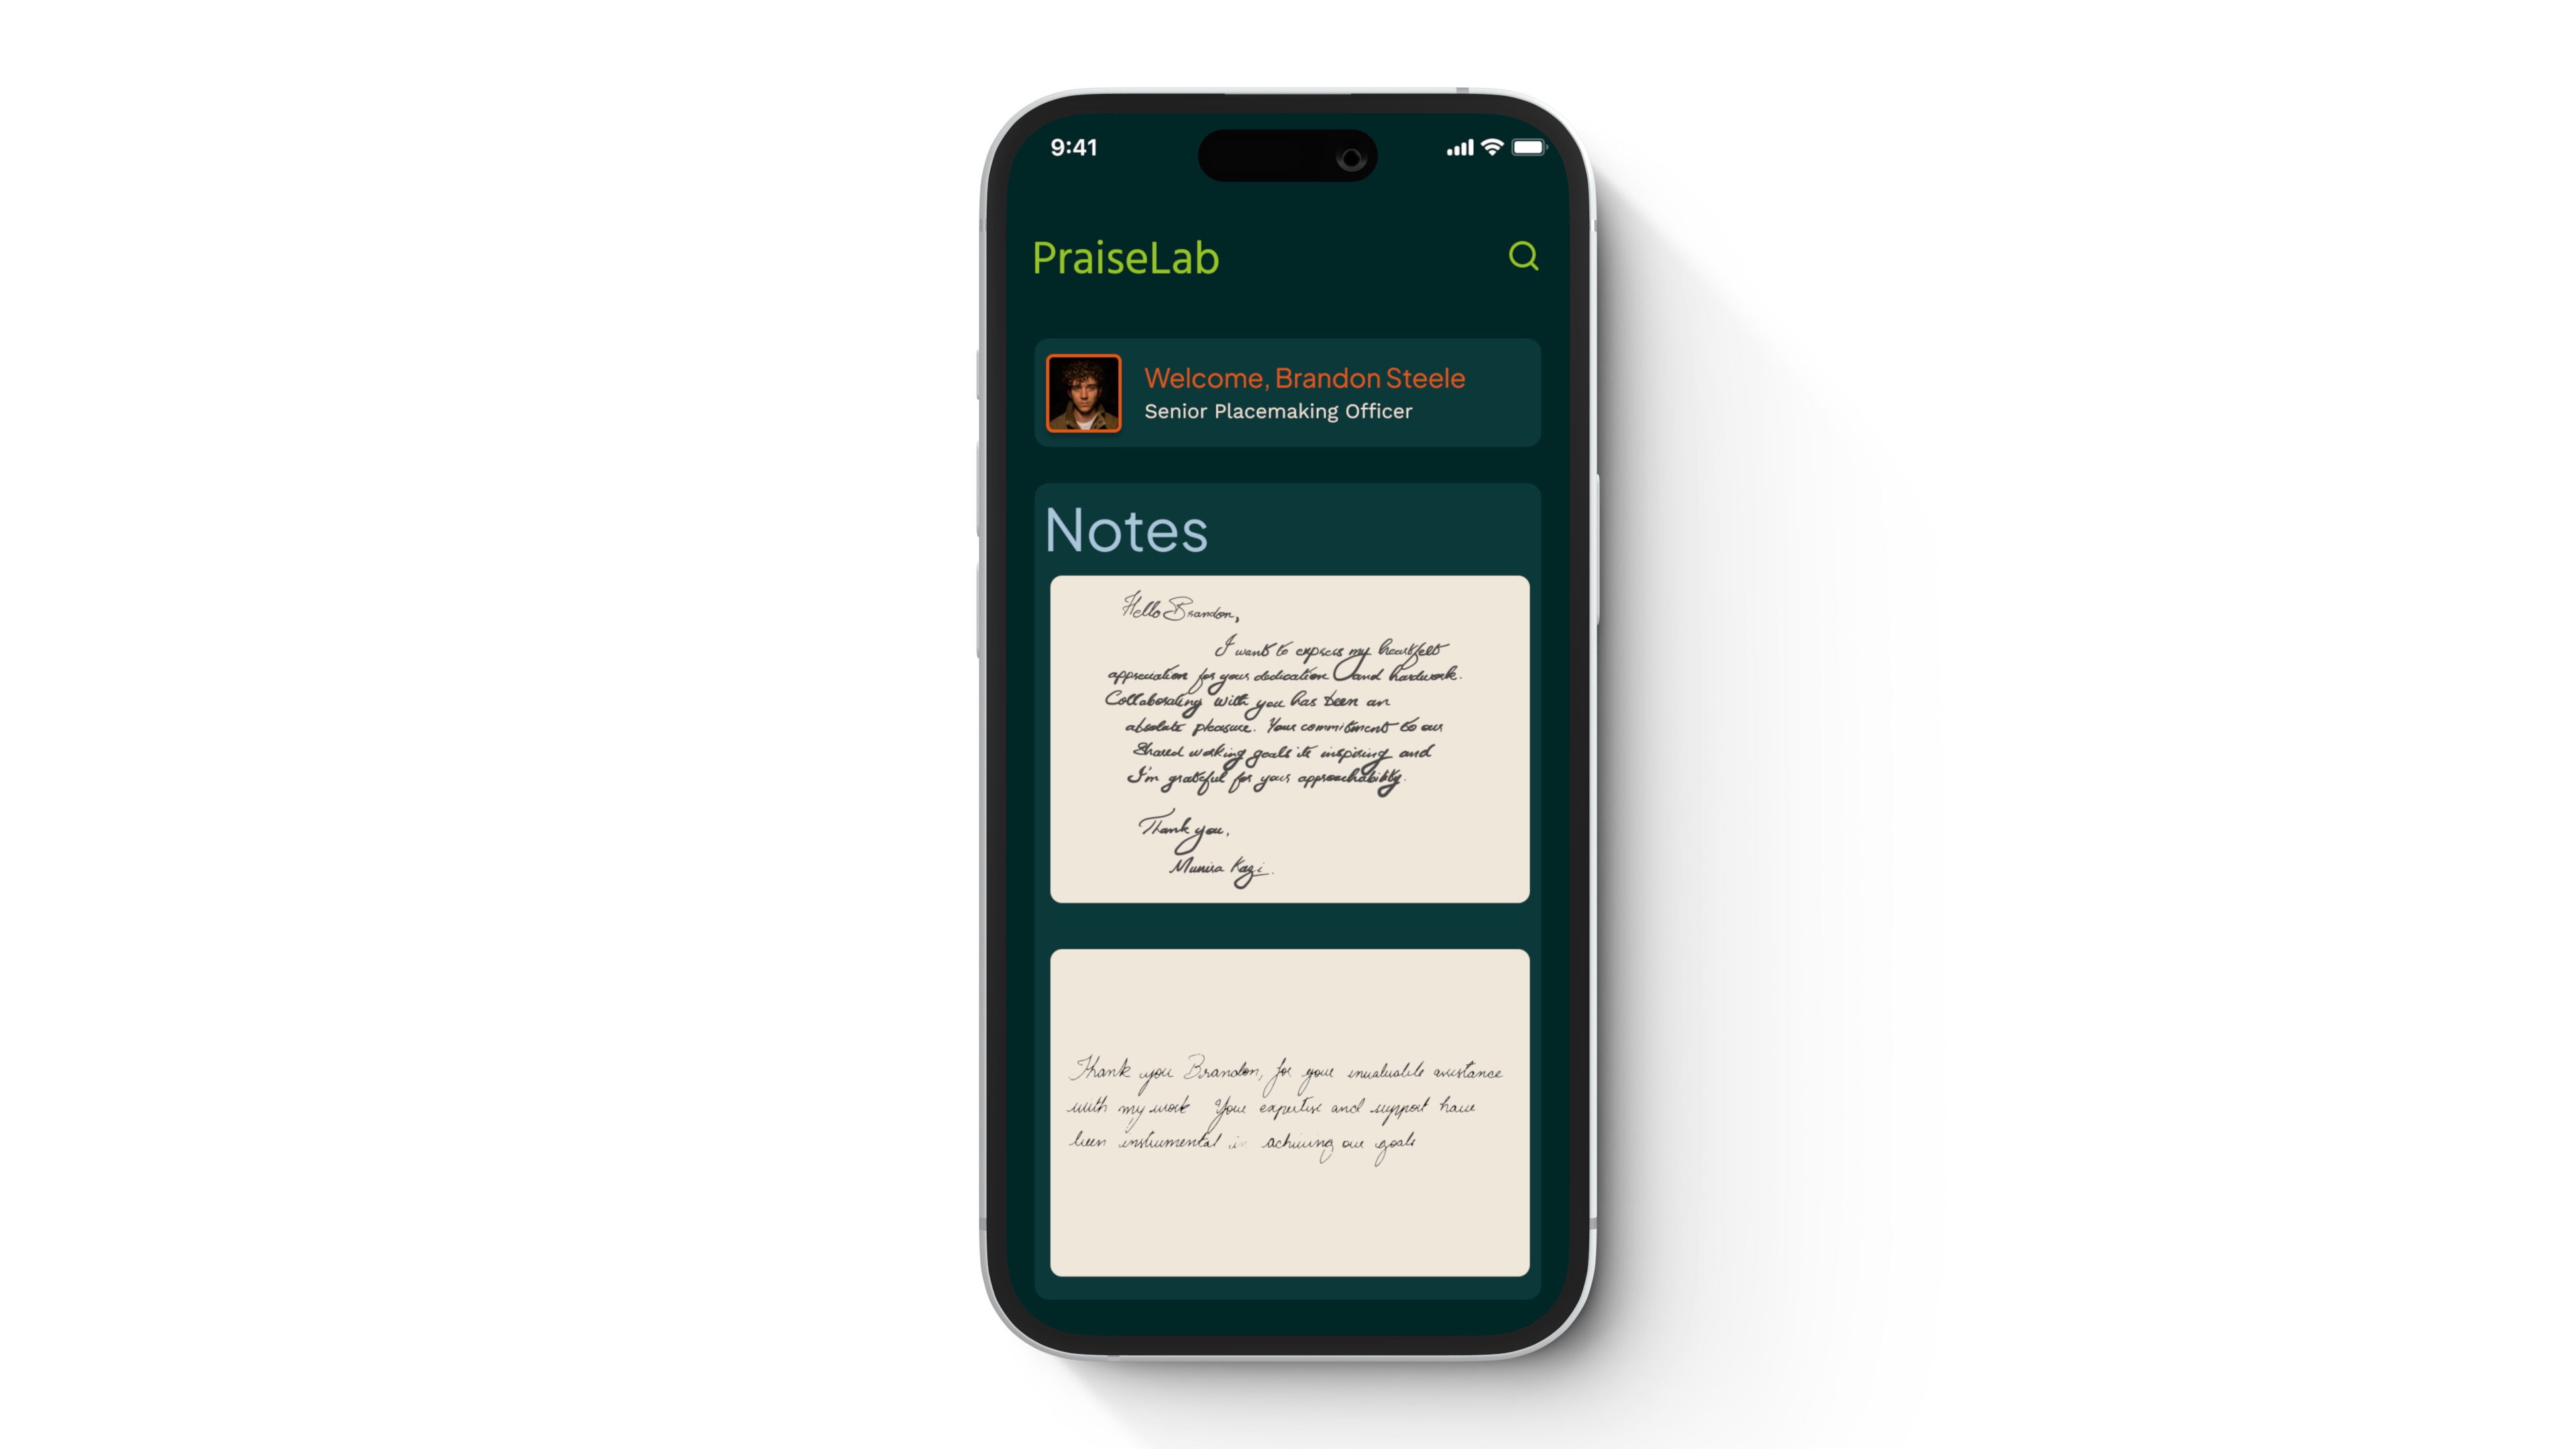 9:41
PraiseLab
Welcome, Brandon Steele
Senior Placemaking Officer
Notes
Hello Brandon,
I want to express my heartfelt
appreciation for your dedication and hardwork.
Collaborating with you has been an
absolute pleasure. Your commitment to our
Shared working goals is inspiring and
I'm grateful for your approachability.
Thank you,
Munira Kazi.
Thank you Brandon, for your invaluable assistance
with my work Your expertise and support have
been instrumental in achiving our goals